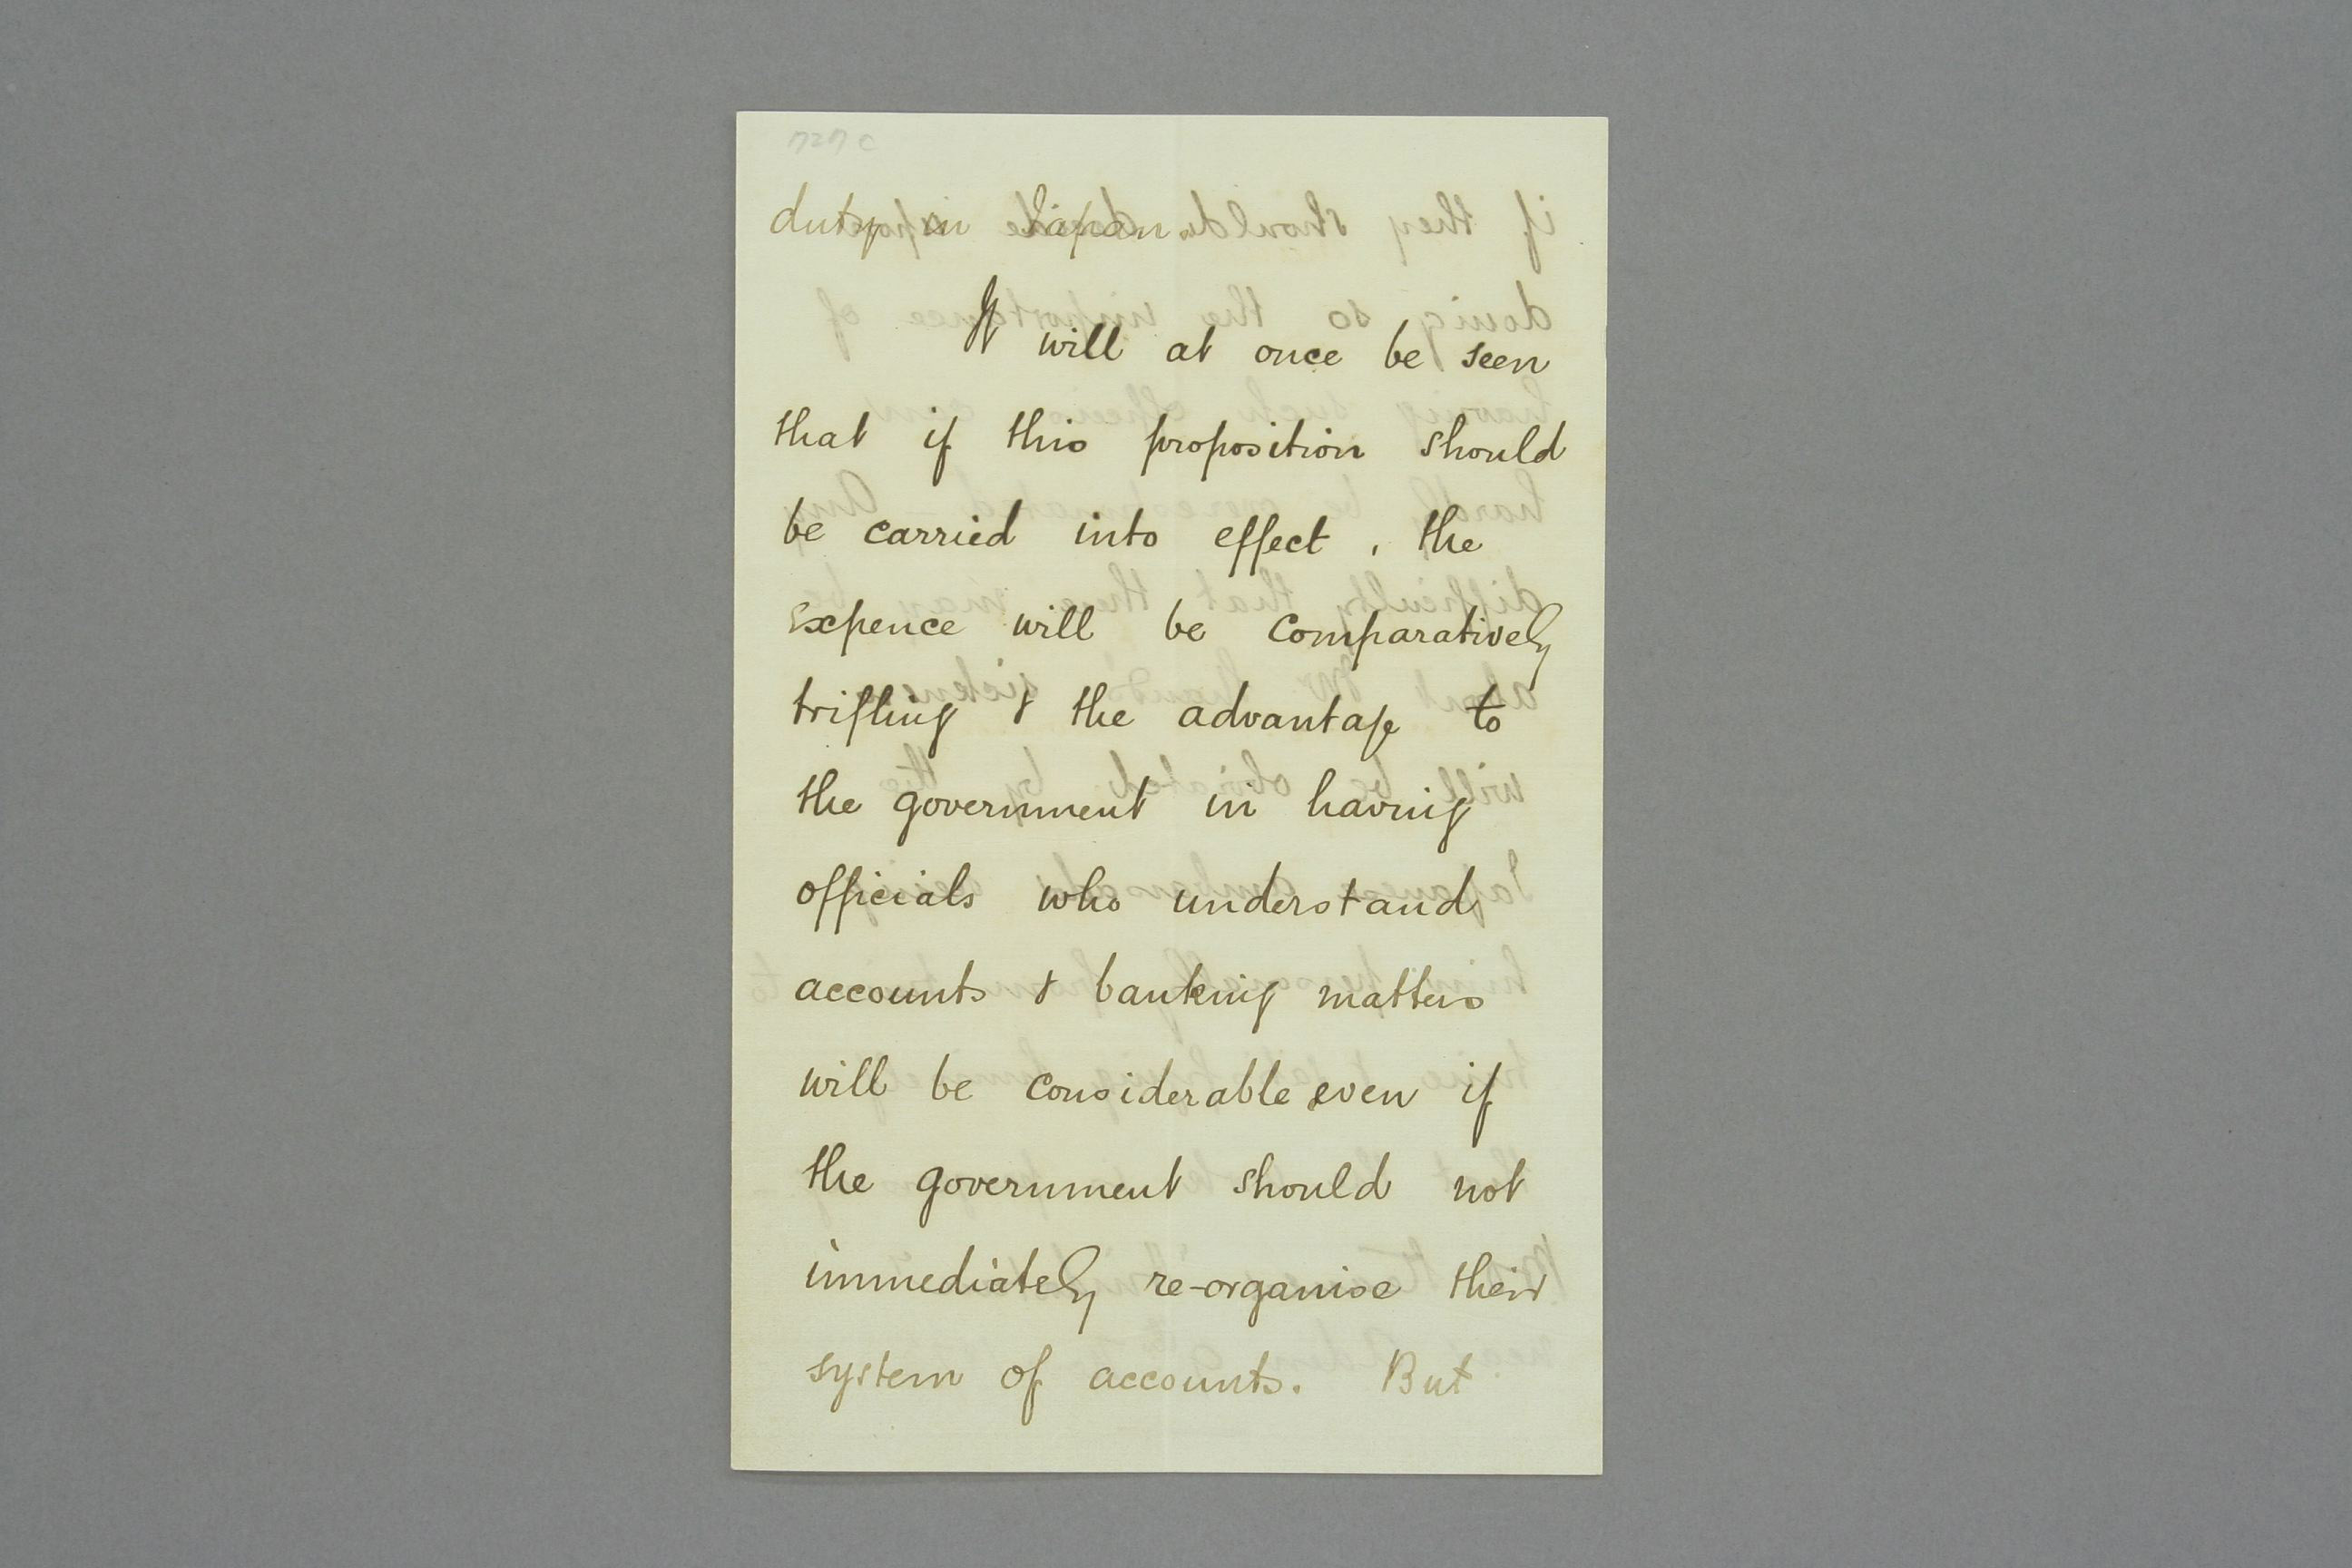 727 c
duty in Japan.
It will at once be seen
that if this proposition should
be carried into effect, the
expence will be comparatively
trifling & the advantage to
the government in having
officials who understand
accounts & banking matters
will be considerable even if
the government should not
immediately re-organise their
system of accounts. But